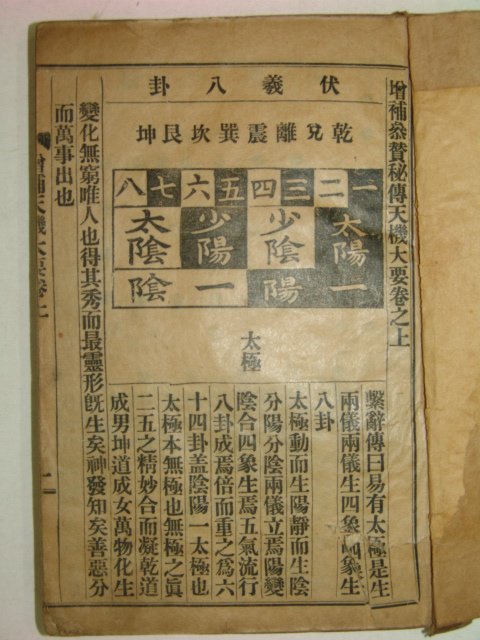 增補叅贊秘傳天機大要卷之上
伏羲八卦
乾兌離震巽坎艮坤
一二三四五六七八
太陽少陰少陽太陰
一陽一陰
太極
繫辭傳曰易有太極是生
兩儀兩儀生四象四象生
八卦
太極動而生陽靜而生陰
分陽分陰兩儀立焉陽變
陰合四象生焉五氣流行
八卦成焉倍而重之爲六
十四卦盖陰陽一太極也
太極本無極也無極之眞
二五之精妙合而凝乾道
成男坤道成女萬物化生
變化無窮唯人也得其秀而最靈形旣生矣神發知矣善惡分
而萬事出也
增補天機大要卷上